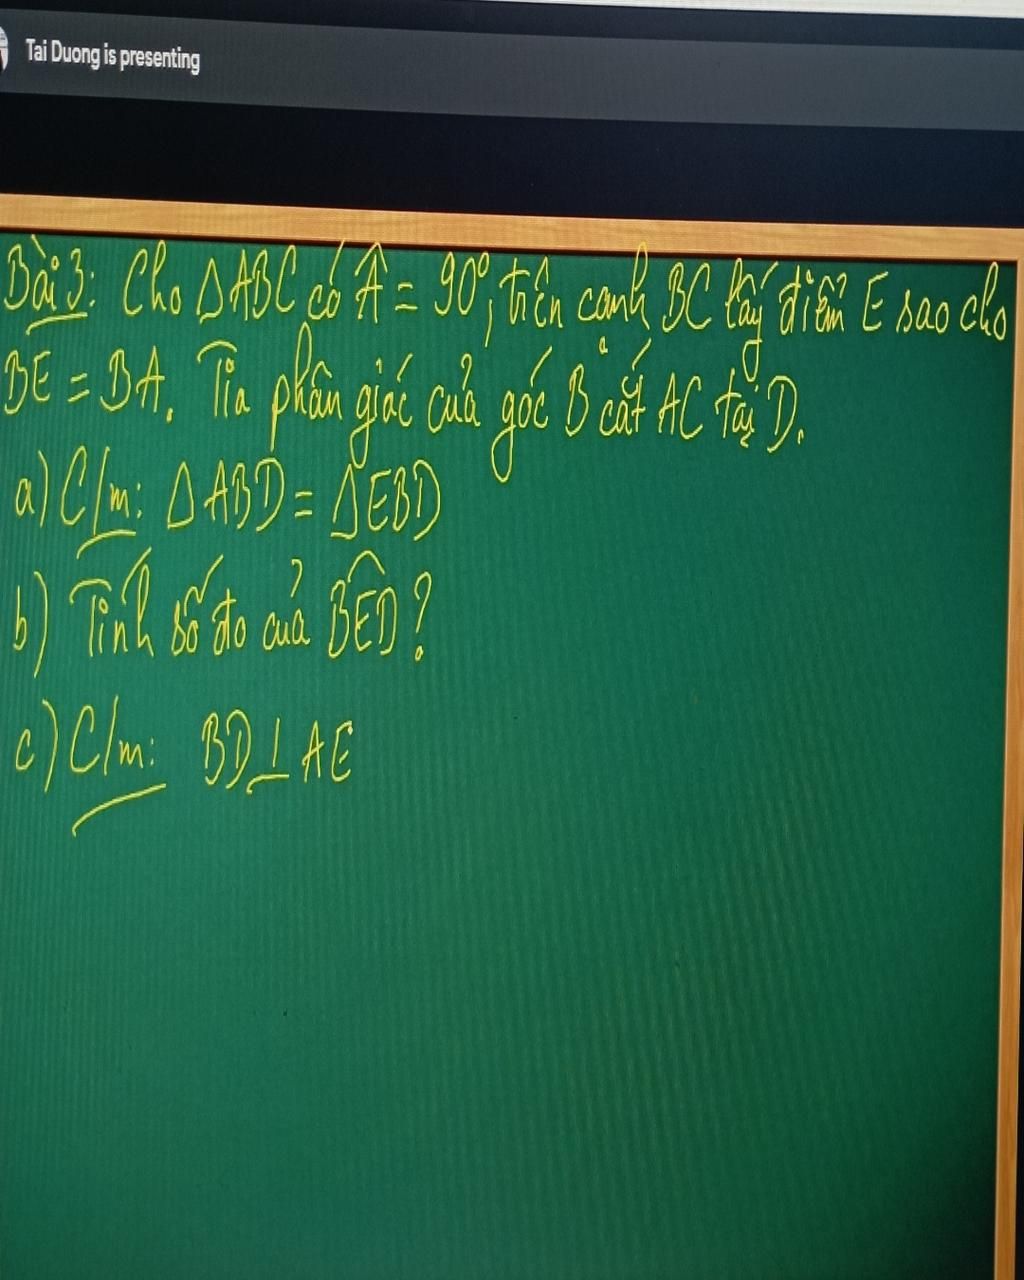 Tai Duong is presenting
Bài 3: Cho ΔABC có Â = 90°, trên cạnh BC lấy điểm E sao cho
BE = BA. Tia phân giác của góc B cắt AC tại D.
a) C/m: ΔABD = ΔEBD
b) Tính số đo của BÊD?
c) C/m: BD ⊥ AE